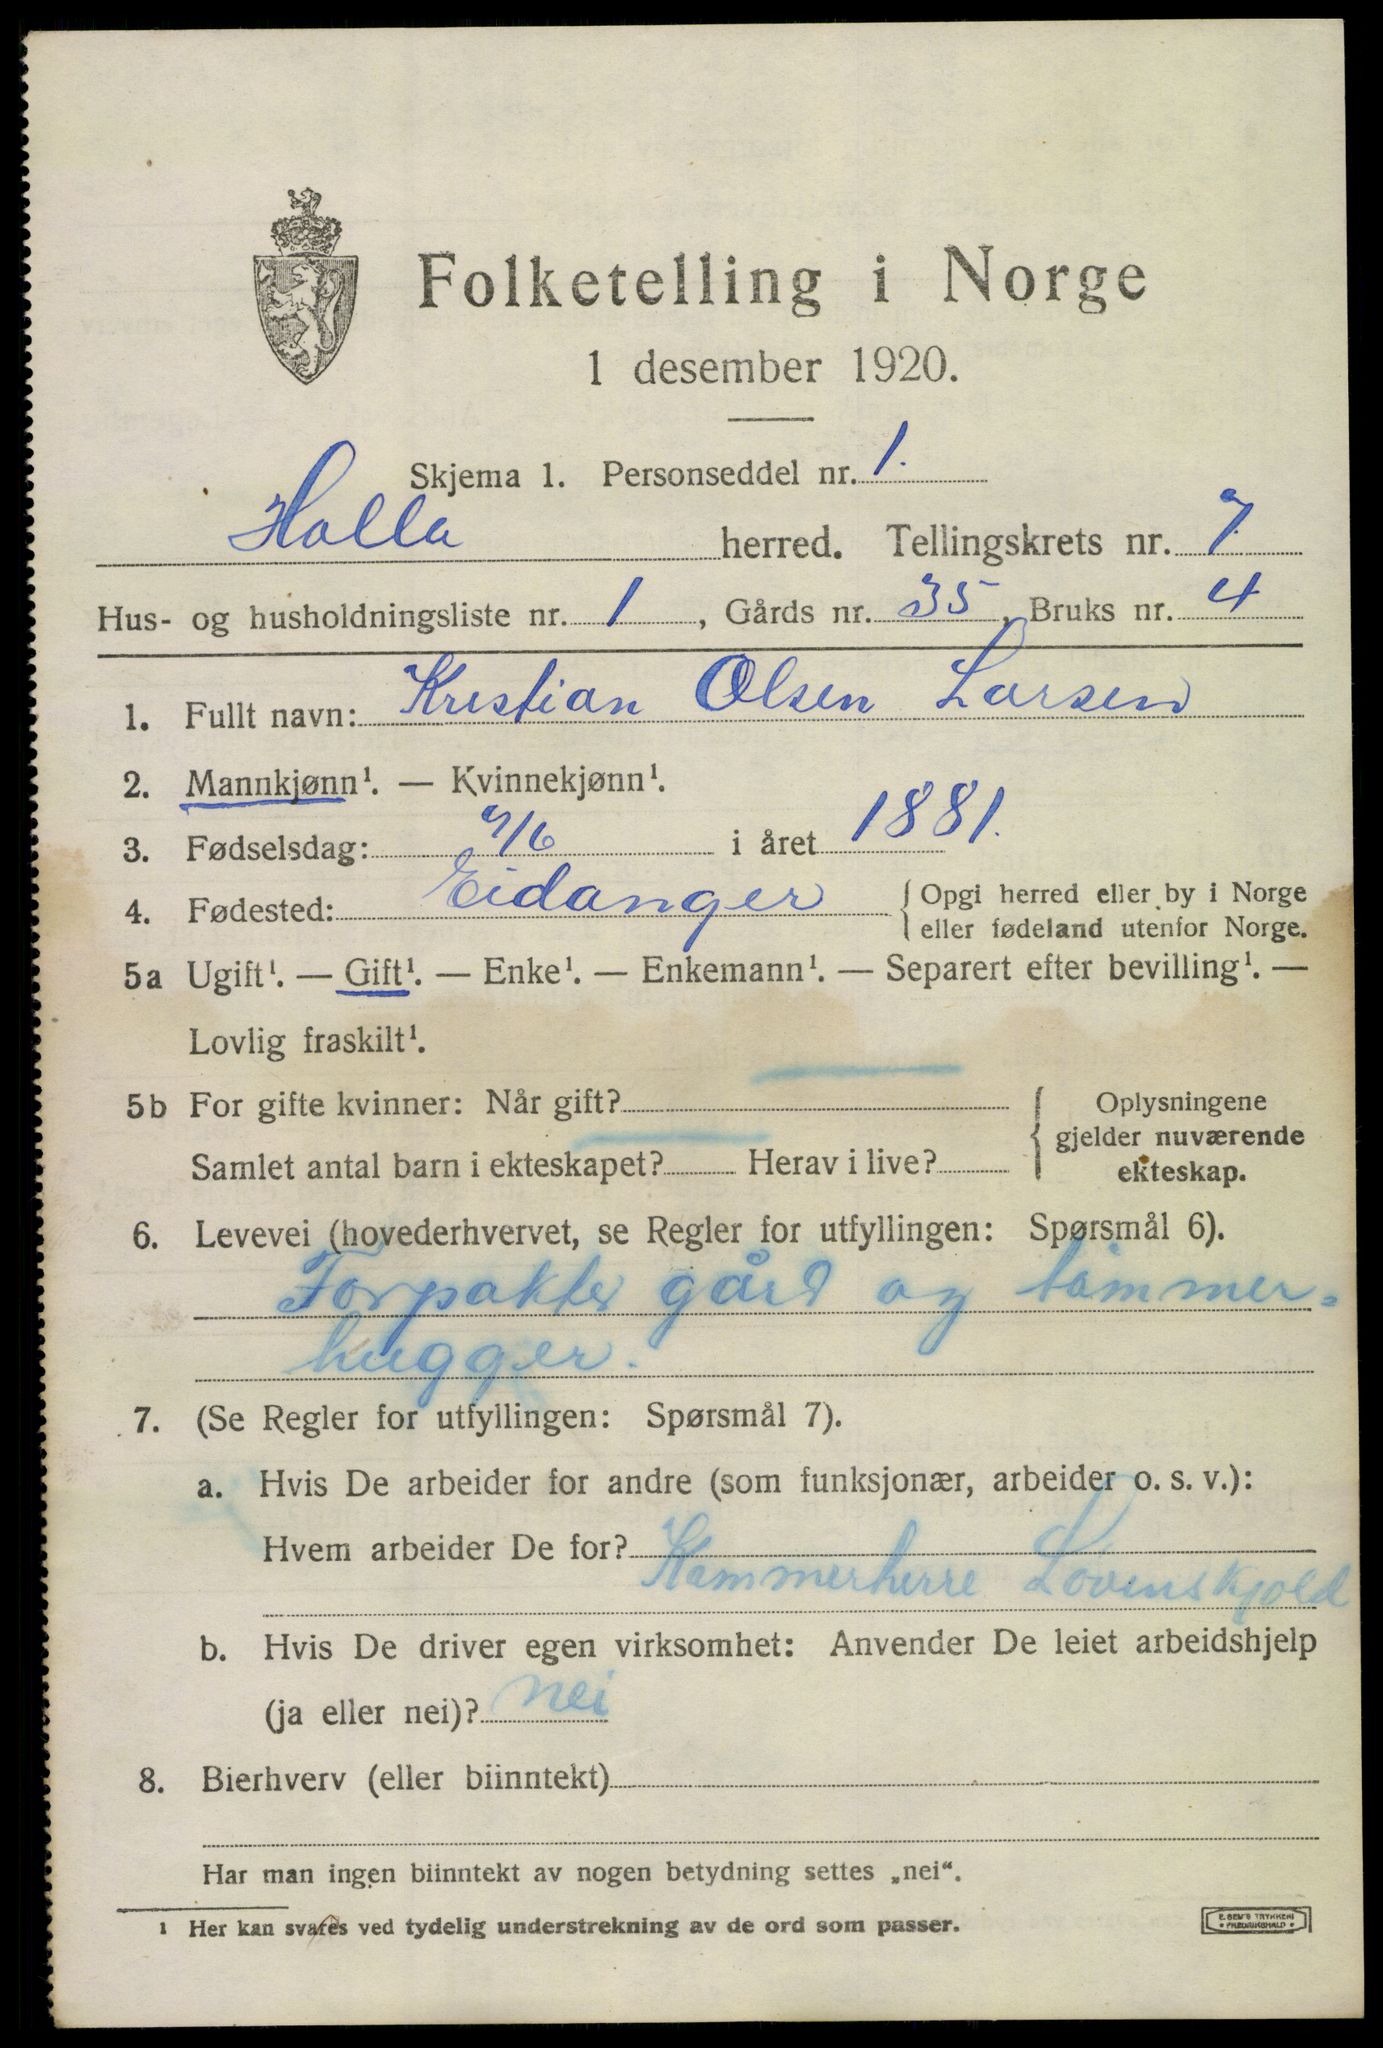 Folketelling i Norge
1 desember 1920.
Skjema 1. Personseddel nr. 1.
Holla herred. Tellingskrets nr. 7
Hus- og husholdningsliste nr. 1, Gårds nr. 35, Bruks nr. 4
1. Fullt navn: Kristian Olsen Larsen
2. Mannkjønn¹. — Kvinnekjønn¹.
3. Fødselsdag: 7/6 i året 1881.
4. Fødested: Eidanger { Opgi herred eller by i Norge
eller fødeland utenfor Norge.
5a Ugift¹. — Gift¹. — Enke¹. — Enkemann¹. — Separert efter bevilling¹. —
Lovlig fraskilt¹.
5b For gifte kvinner: Når gift? { Oplysningene
gjelder nuværende
Samlet antal barn i ekteskapet? Herav i live? ekteskap.
6. Levevei (hovederhvervet, se Regler for utfyllingen: Spørsmål 6).
Forpakter gård og tømmer-
hugger.
7. (Se Regler for utfyllingen: Spørsmål 7).
a. Hvis De arbeider for andre (som funksjonær, arbeider o. s. v.):
Hvem arbeider De for?
Kammerherre Løvenskjold
b. Hvis De driver egen virksomhet: Anvender De leiet arbeidshjelp
(ja eller nei)? nei
8. Bierhverv (eller biinntekt)
Har man ingen biinntekt av nogen betydning settes „nei“.
¹ Her kan svares ved tydelig understrekning av de ord som passer.
E. SEM'S TRYKKERI
• FREDRIKSHALD •